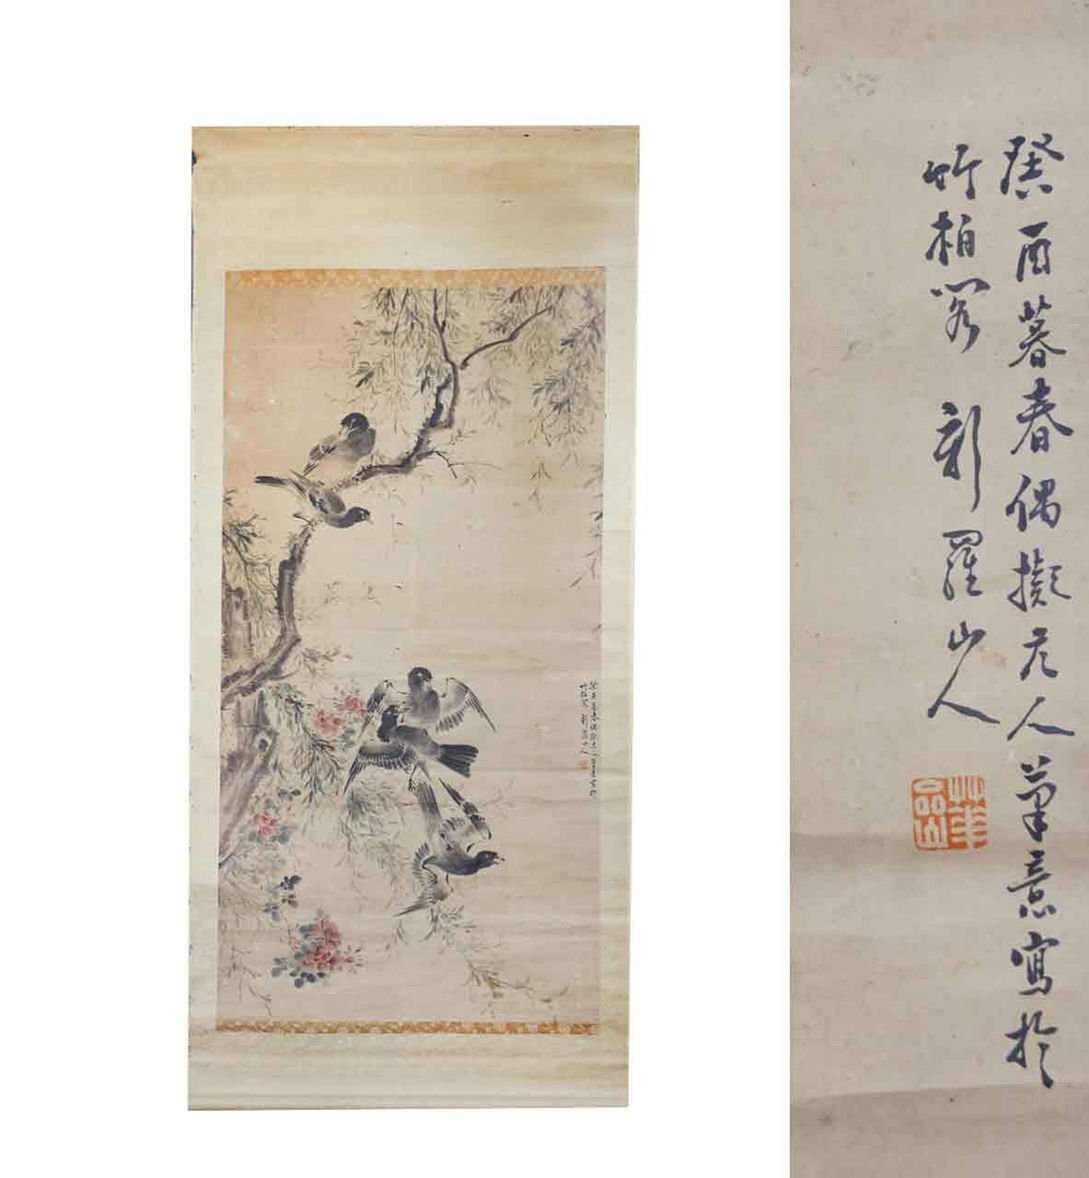 癸酉暮春偶擬元人筆意寫於
竹柏閣 新羅山人
華嵒